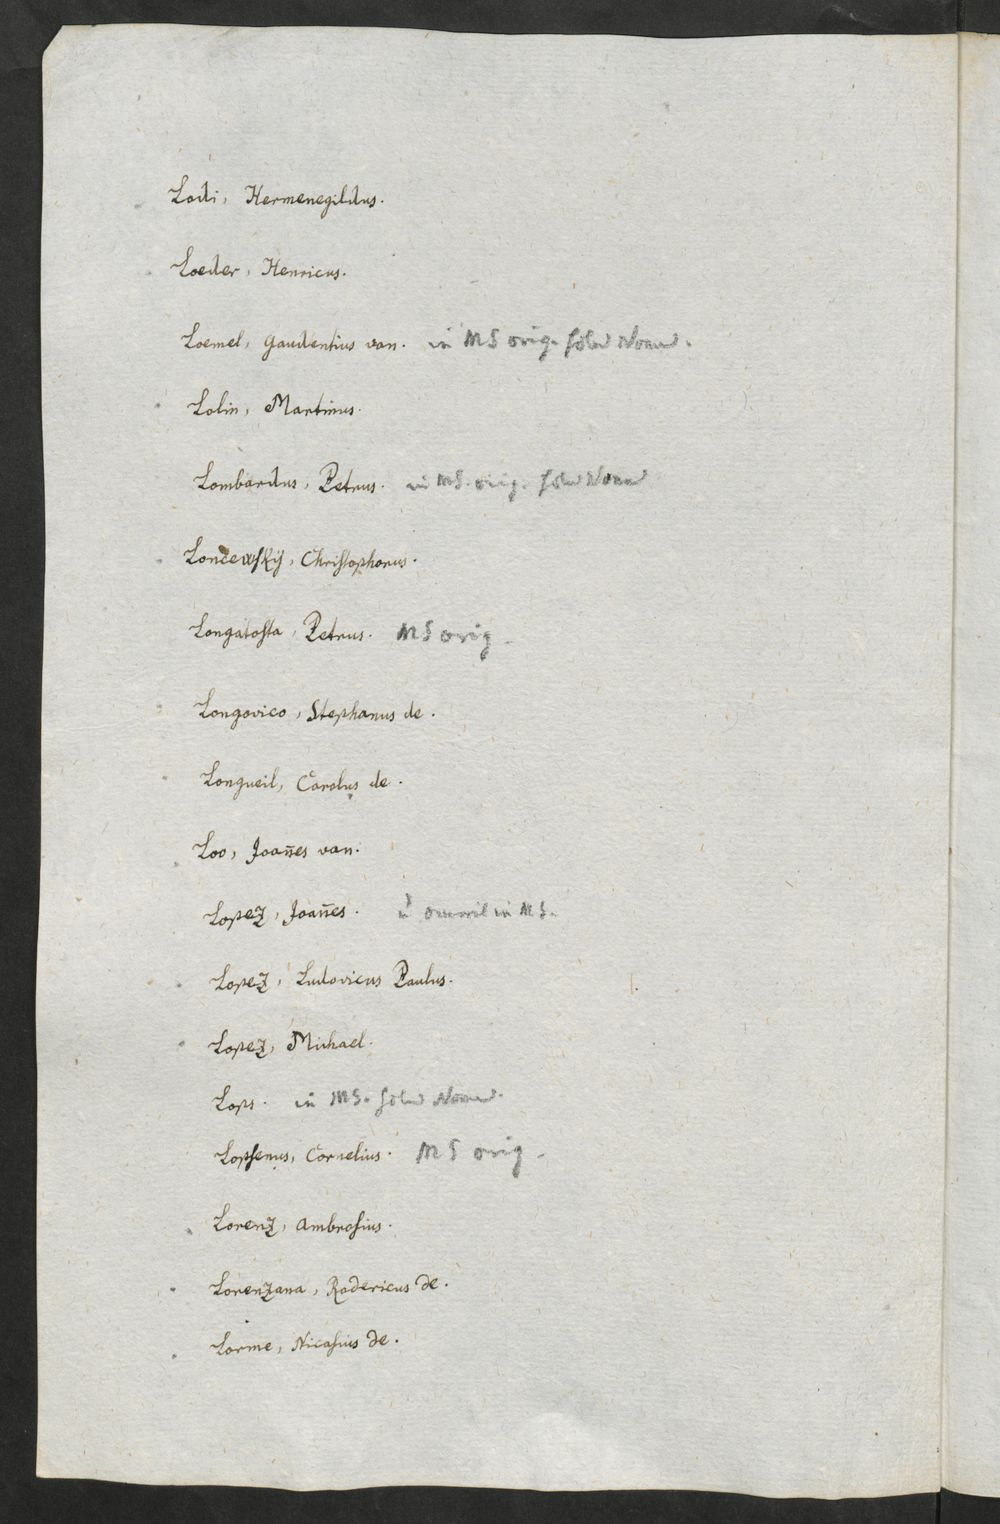 Lodi, Hermenegildus.
Loeder, Henricus.
Loemel, Gaudentius van. in MS orig.
Lolin, Martinus.
Lombardus, Petrus. in MS. orig.
Loncewskij, Christophorus.
Longatosta, Petrus. MS orig.
Longovico, Stephanus de.
Longueil, Carolus de.
Loo, Joan̄es van.
Lopez, Joan̄es. in MS.
Lopez, Ludovicus Paulus.
Lopez, Michael.
Lops. in MS.
Lopsenus, Cornelius. MS orig.
Lorenz, Ambrosius.
Lorenzana, Rodericus de.
Lorme, Nicasius de.